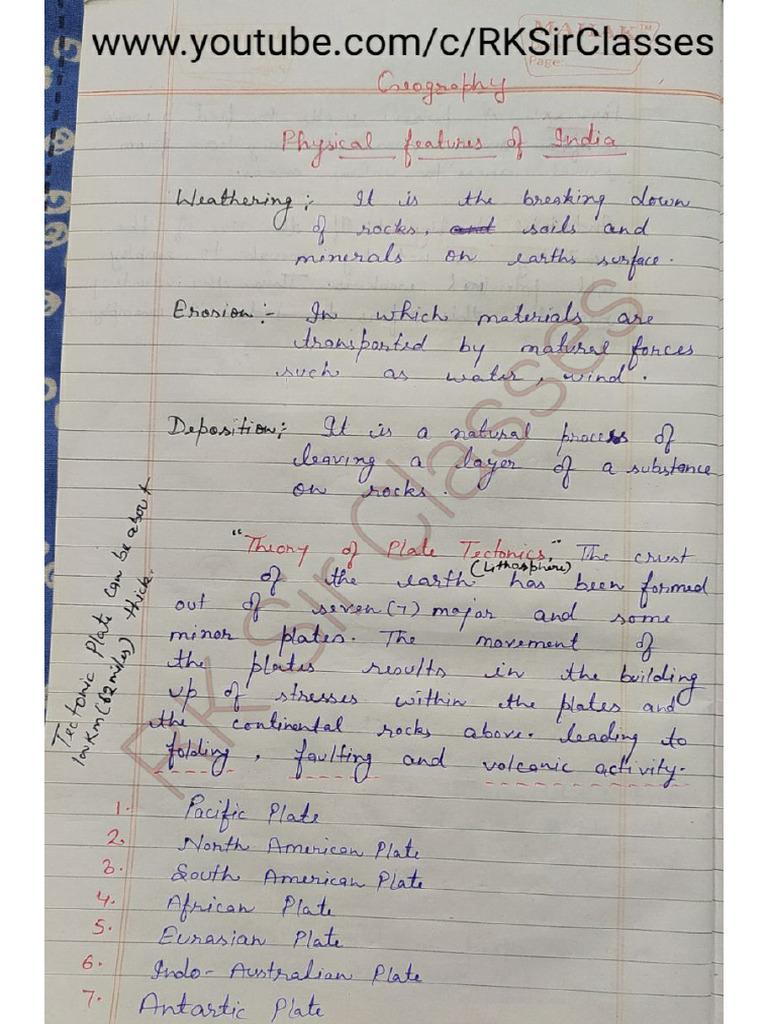 MAHAK™
www.youtube.com/c/RKSirClasses
Page:
Geography
Physical features of India
Weathering :- It is the breaking down
of rocks, and soils and
minerals on earths surface.
Erosion :- In which materials are
transported by natural forces
such as water, wind.
Deposition :- It is a natural process of
leaving a layer of a substance
on rocks.
"Theory of Plate Tectonics." The crust
(Lithosphere)
of the earth has been formed
out of seven (7) major and some
minor plates. The movement of
the plates results in the building
up of stresses within the plates and
the continental rocks above. leading to
folding, faulting and volcanic activity.
Tectonic Plate can be about
100Km (62 miles) thick.
1. Pacific Plate
2. North American Plate
3. South American Plate
4. African Plate
5. Eurasian Plate
6. Indo-Australian Plate
7. Antartic Plate
RK Sir Classes